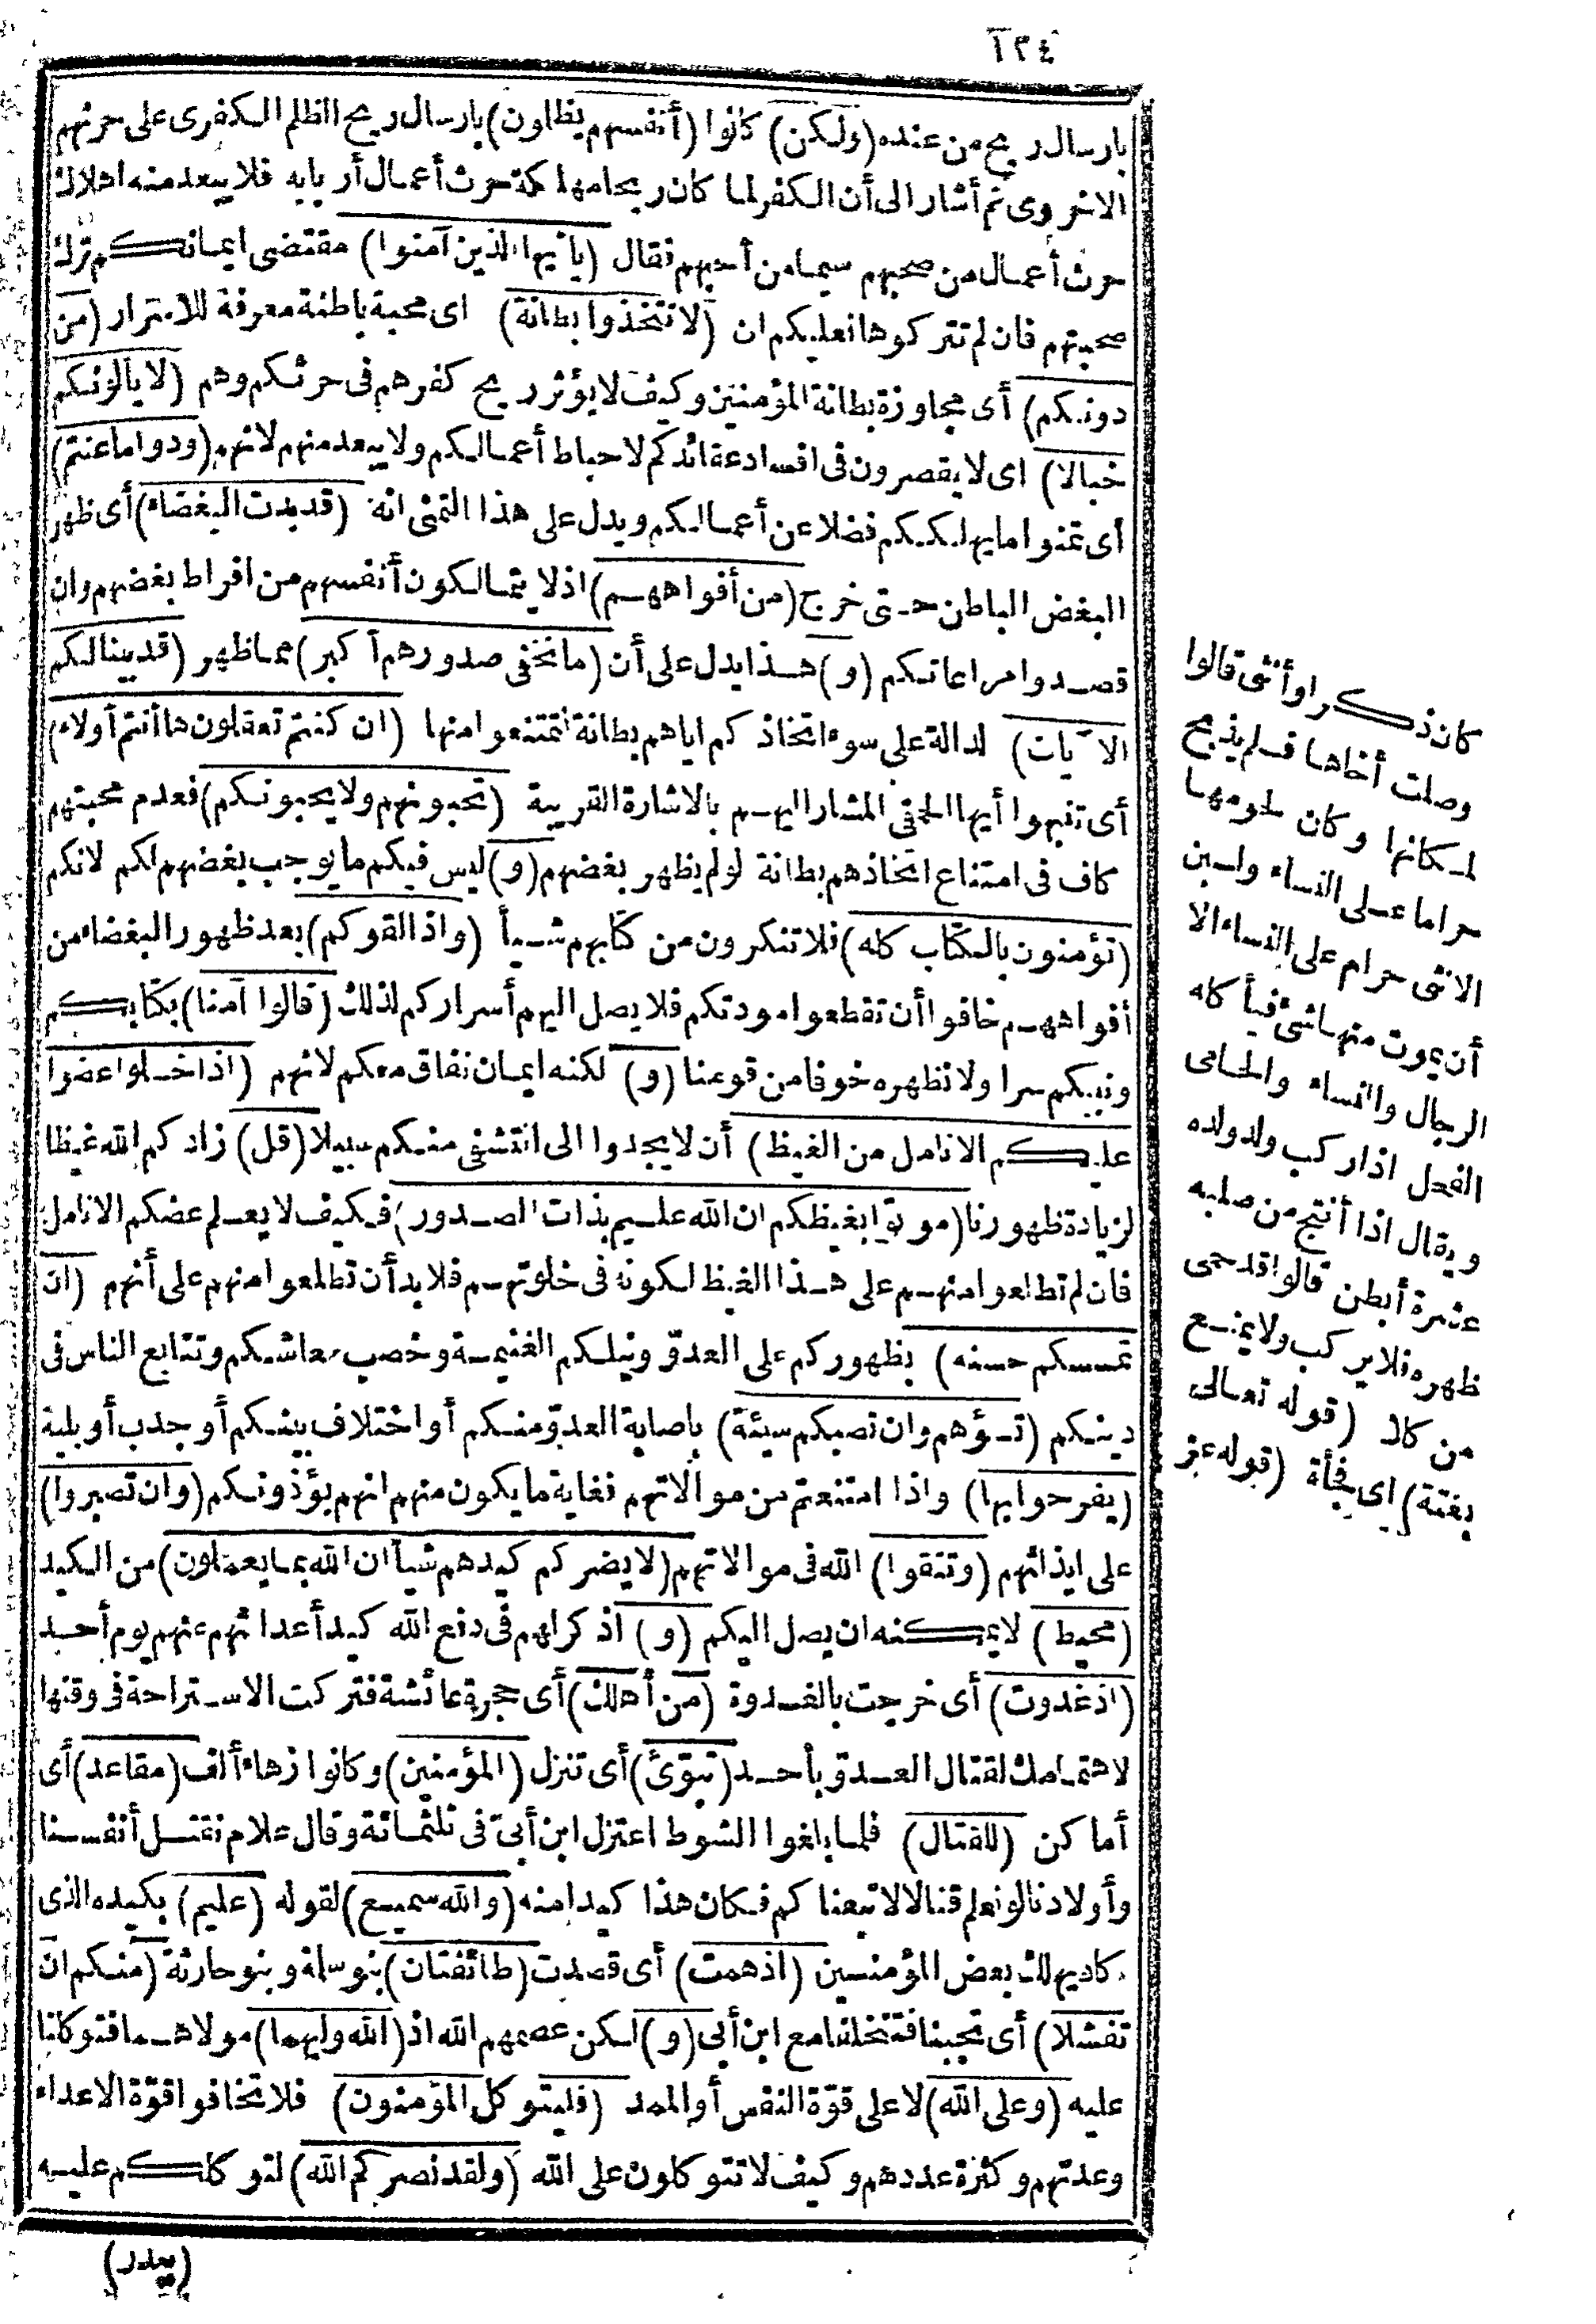 ١٢٤
بارسال ريح من عنده (ولكن) كانوا (أنفسهم يظلمون) بارسال ريح الظلم الكفرى على حرثهم
الاخروى ثم أشار الى أن الكفر لما كان ريحا مهلكة حرث أعمال أربابه فلا يبعد منه اهلاك
حرث أعمال من صحبهم سيما من أحبهم فقال (يا أيها الذين آمنوا) مقتضى ايمانكم ترك
صحبتهم فان لم تتركوها فعليكم ان (لا تتخذوا بطانة) اى محبة باطنة معرفة للاسرار (من
دونكم) أى مجاوزة بطانة المؤمنين وكيف لا يؤثر ريح كفرهم فى حرثكم وهم (لا يألونكم
خبالا) اى لا يقصرون فى افساد عقائدكم لاحباط أعمالكم ولا يبعد منهم لانهم (ودوا ما عنتم)
أى تمنوا ما يهلككم فضلا عن أعمالكم ويدل على هذا التمنى انه (قد بدت البغضاء) أى ظهر
البغض الباطن حتى خرج (من أفواههم) اذ لا يتمالكون أنفسهم من افراط بغضهم وان
قصدوا مراعاتكم (و) هذا يدل على أن (ما تخفى صدورهم أكبر) مما ظهر (قد بينا لكم
الآيات) لدالة على سوء اتخاذكم اياهم بطانة لتمتنعوا منها (ان كنتم تعقلون ها أنتم أولاء)
أى تنبهوا أيها الحمقى المشار اليهم بالاشارة القريبة (تحبونهم ولا يحبونكم) فعدم محبتهم
كاف فى امتناع اتخاذهم بطانة لو لم يظهر بغضهم (و) ليس فيكم ما يوجب بغضهم لكم لانكم
(تؤمنون بالكتاب كله) فلا تنكرون من كتابهم شيأ (واذا لقوكم) بعد ظهور البغضاء من
أفواههم خافوا أن تقطعوا مودتكم فلا يصل اليهم أسراركم لذلك (قالوا آمنا) بكتابكم
ونبيكم سرا ولا نظهره خوفا من قومنا (و) لكنه ايمان نفاق معكم لانهم (اذا خلوا عضوا
عليكم الانامل من الغيظ) أن لا يجدوا الى التشفى منكم سبيلا (قل) زادكم الله غيظا
لزيادة ظهورنا (موتوا بغيظكم ان الله عليم بذات الصدور) فكيف لا يعلم عضكم الانامل
فان لم تطلعوا منهم على هذا الغيظ لكونه فى خلوتهم فلا بد أن تطلعوا منهم على أنهم (ان
تمسسكم حسنة) بظهوركم على العدو ونيلكم الغنيمة وخصب معاشكم وتتابع الناس فى
دينكم (تسؤهم وان تصبكم سيئة) باصابة العدو منكم أو اختلاف بينكم أو جدب أو بلية
(يفرحوا بها) واذا امتنعتم من موالاتهم فغاية ما يكون منهم انهم يؤذونكم (وان تصبروا)
على ايذائهم (وتتقوا) الله فى موالاتهم (لا يضركم كيدهم شيأ ان الله بما يعملون) من الكيد
(محيط) لا يمكنه ان يصل اليكم (و) اذكر لهم فى دفع الله كيد أعدائهم عنهم يوم أحد
(اذ غدوت) أى خرجت بالغدوة (من أهلك) أى حجرة عائشة فتركت الاستراحة فى وقتها
لاهتمامك لقتال العدو بأحد (تبوّئ) أى تنزل (المؤمنين) وكانوا زهاء ألف (مقاعد) أى
أماكن (للقتال) فلما بلغوا الشوط اعتزل ابن أبىّ فى ثلثمائة وقال علام نقتل أنفسنا
وأولادنا لو نعلم قتالا لاتبعناكم فكان هذا كيدا منه (والله سميع) لقوله (عليم) بكيده الذى
كاد يهلك بعض المؤمنين (اذ همت) أى قصدت (طائفتان) بنو سلمة وبنو حارثة (منكم ان
تفشلا) أى تجبنا فتتخلفا مع ابن أبى (و) لكن عصمهم الله اذ (الله وليهما) مولاهما فتوكلنا
عليه (وعلى الله) لا على قوّة النفس أو المدد (فليتوكل المؤمنون) فلا تخافوا قوّة الاعداء
وعدتهم وكثرة عددهم وكيف لا تتوكلون على الله (ولقد نصركم الله) لتوكلكم عليه
(ببدر)
كان ذكرا وأنثى قالوا
وصلت أخاها فلم يذبح
لمكانها وكان لحومها
حراما على النساء ولبن
الانثى حرام على النساء الا
أن يموت منها شئ فيأكله
الرجال والنساء والحامى
الفحل اذا ركب ولد ولده
ويقال اذا أنتج من صلبه
عشرة أبطن قالوا قد حمى
ظهره فلا يركب ولا يمنع
من كلا (قوله تعالى
بغتة) اى فجأة (قوله عز